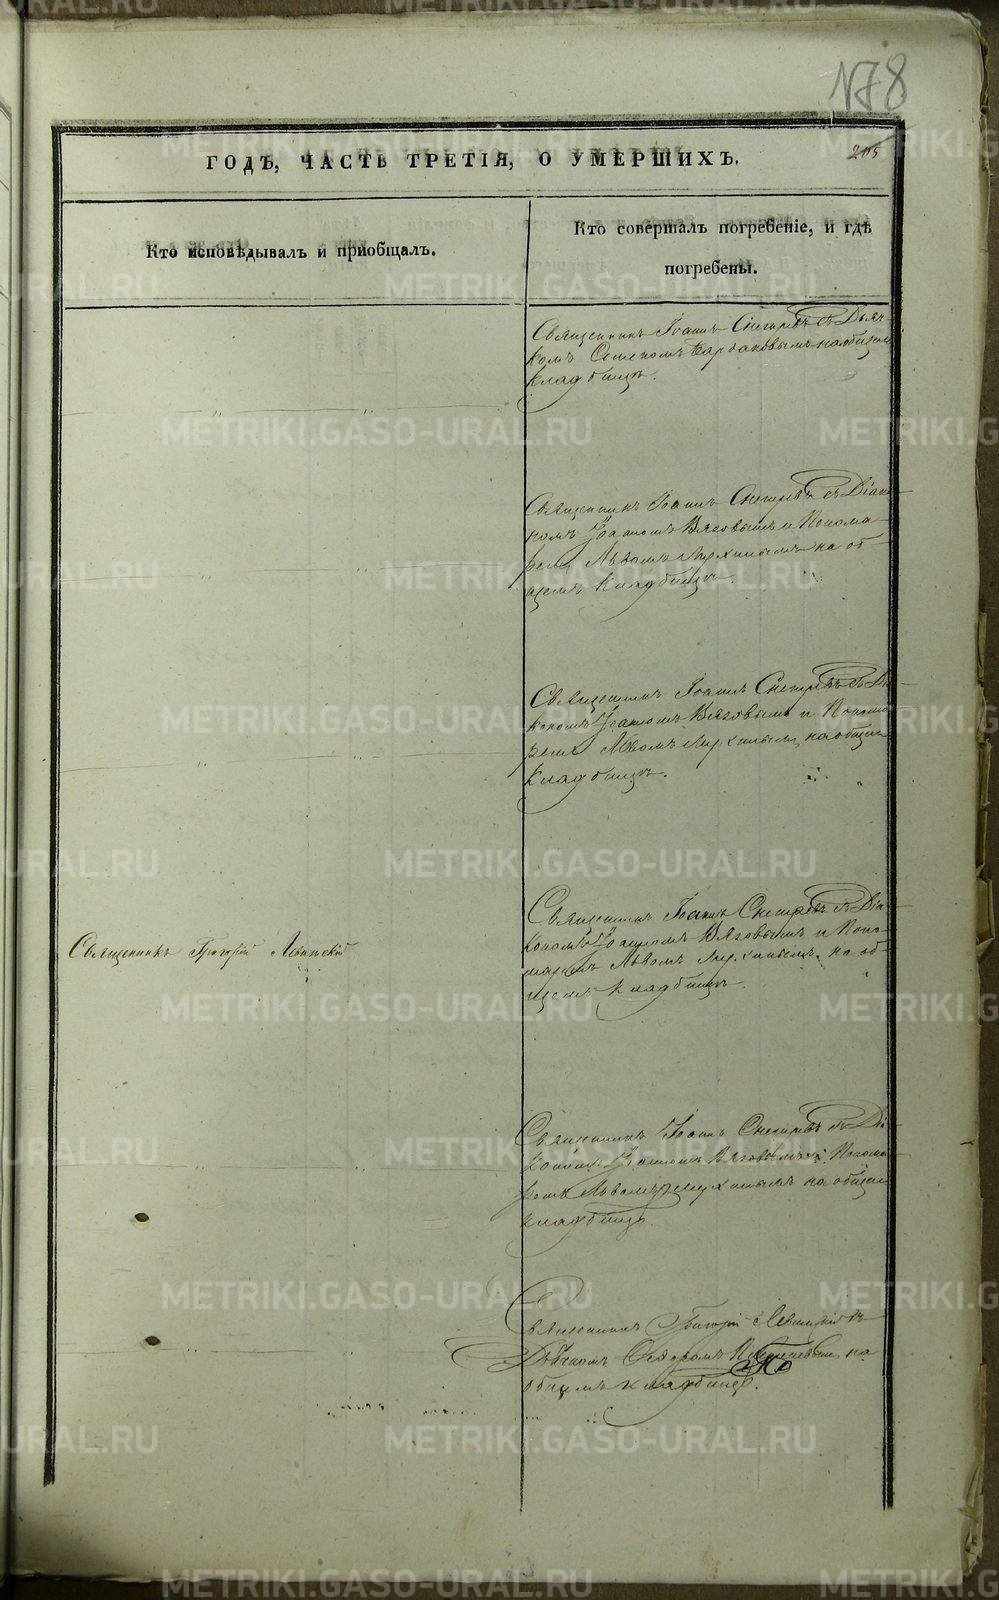 178
205
ГОДЪ, ЧАСТЬ ТРЕТІЯ, О УМЕРШИХЪ.
Кто исповѣдывалъ и пріобщалъ.
Кто совершалъ погребеніе, и гдѣ
погребены.
Священникъ Іоаннъ Снегиревъ съ Дьяч-
комъ на общемъ
кладбищѣ.
Священникъ Іоаннъ Снегиревъ съ Діако-
номъ Іоанномъ Вяловымъ и Понома-
ремъ Львомъ на об-
щемъ кладбищѣ.
Священникъ Іоаннъ Снегиревъ съ Діа-
кономъ Іоанномъ Вяловымъ и Понома-
ремъ Львомъ на общемъ
кладбищѣ.
Священникъ Григорій Левитскій
Священникъ Іоаннъ Снегиревъ съ Діа-
кономъ Іоанномъ Вяловымъ и Поно-
маремъ Львомъ на об-
щемъ кладбищѣ.
Священникъ Іоаннъ Снегиревъ съ Діа-
кономъ Іоанномъ Вяловымъ и Понома-
ремъ Львомъ на общемъ
кладбищѣ.
Священникъ Григорій Левитскій съ
Дьячкомъ Ѳедоромъ на
общемъ кладбищѣ.
METRIKI.GASO-URAL.RU